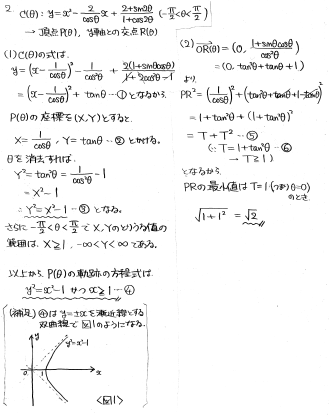 2. C(θ): y = x² - 2/cosθ x + (2+sin2θ)/(1+cos2θ) (-π/2<θ<π/2)
→ 頂点P(θ), y軸との交点R(θ)
(1) C(θ)の式は.
y = (x - 1/cosθ)² - 1/cos²θ + 2(1+sinθcosθ)/(1+2cos²θ-1)
= (x - 1/cosθ)² + tanθ …① となるから.
P(θ)の座標を(X,Y)とすると.
X = 1/cosθ, Y = tanθ …② とかける.
θを消去すれば.
Y² = tan²θ = 1/cos²θ - 1
= X² - 1
∴ Y² = X² - 1 …③ となる.
さらに -π/2<θ<π/2 で X,Yのとりうる値の
範囲は. X≧1, -∞<Y<∞ である.
以上から. P(θ)の軌跡の方程式は.
y² = x² - 1 かつ x≧1 …④
(補足) ④は y=±x を漸近線とする
双曲線で 図1のようになる.
y
y²=x²-1
0
1
x
<図1>
(2) OR(θ) = (0, (1+sinθcosθ)/cos²θ)
= (0, tan²θ+tanθ+1)
より
PR² = (1/cosθ)² + (tan²θ+tanθ+1-tanθ)²
= 1+tan²θ + (1+tan²θ)²
= T + T² …⑤
(∵ T = 1+tan²θ …⑥
→ T≧1)
となるから.
PRの最小値は T=1 (つまりθ=0)
のとき.
√(1+1²) = √2